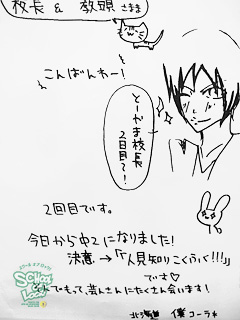 校長 & 教頭 さまま
こんばんわー!
とーやま校長
2日目〜!
2回目です。
今日から中2になりました!
決意 →「「人見知りこくふく!!!」
です♡
そんでもって、芸人さんにたくさん会います!
SCHOOL
OF LOCK!
北海道 僕コーラ